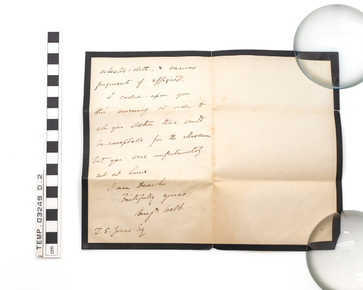 asbestos-cloth, & various
fragments of
I called upon you
this morning in order to
ask you whether these would
be acceptable for the Museum
but you were unfortunately
not at home.
I am Dear Sir
Faithfully yours
Webb
T. S. Jones Esq
TEMP. 03249 D. 2